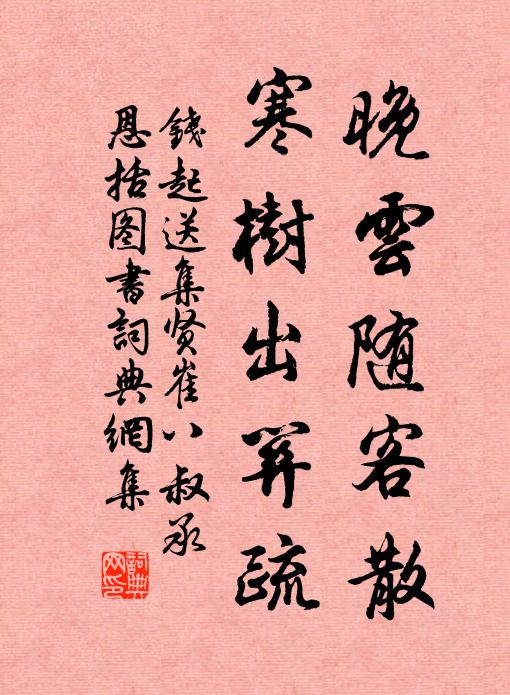 晚雲随客散
寒樹出关疏
錢起送集贤崔八叔承
恩括图書詞典網集
詞典網印